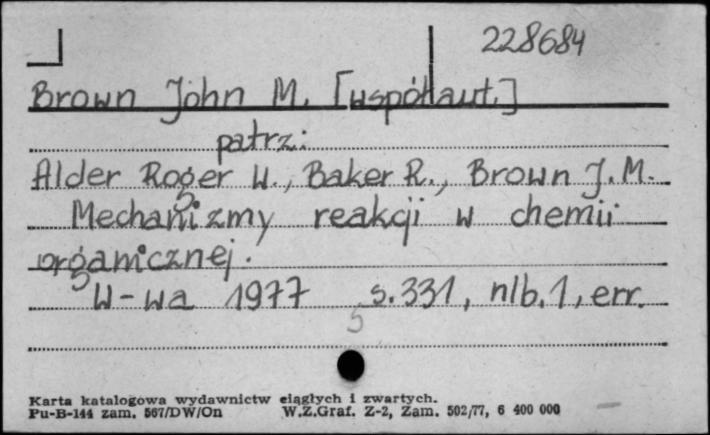 228684
Brown John M. [współaut.]
patrz:
Alder Roger W., Baker R., Brown J.M.
Mechanizmy reakcji w chemii
organicznej.
W-wa 1977 s.331, nlb.1, err.
Karta katalogowa wydawnictw ciągłych i zwartych.
Pu-B-144 zam. 567/DW/On W.Z.Graf. Z-2, Zam. 502/77, 6 400 000